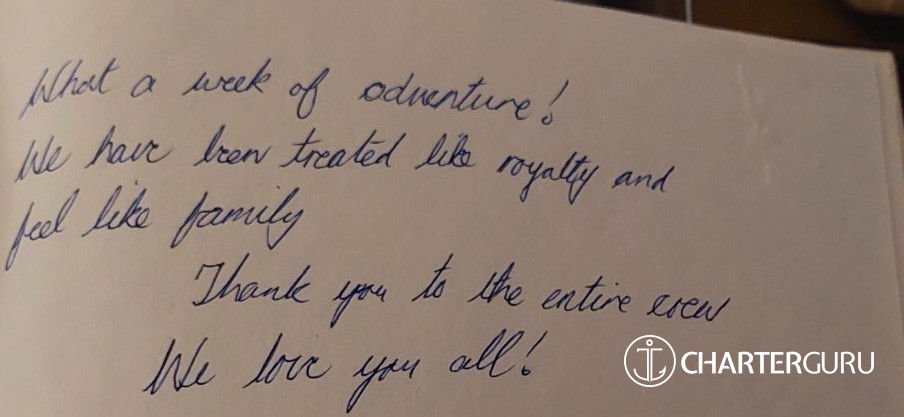 What a week of adventure!
We have been treated like royalty and
feel like family
Thank you to the entire crew
We love you all!
CHARTERGURU